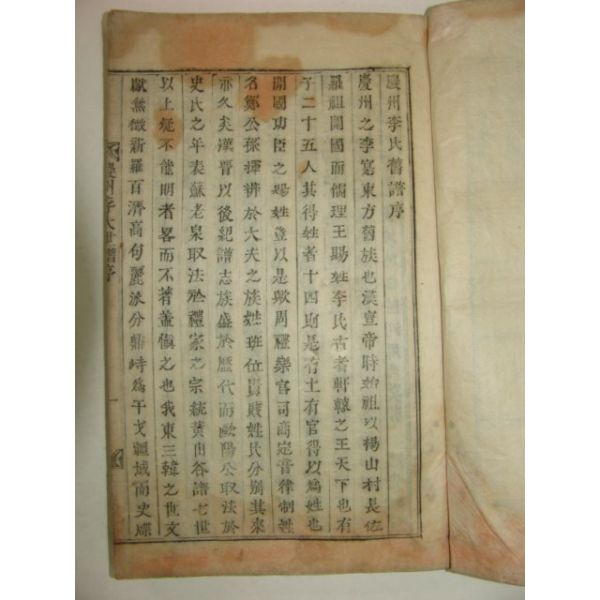 慶州李氏舊譜序
慶州之李寔東方舊族也漢宣帝時始祖以楊山村長佐
羅祖開國而儒理王賜姓李氏古者軒轅之王天下也有
子二十五人其得姓者十四則是有土有官得以爲姓也
開國功臣之賜姓豈以是歟周禮樂官司商定音律制姓
名鄭公孫揮辨於大夫之族姓班位貴賤姓氏分別其來
亦久矣漢晉以後紀譜志族盛於歷代而歐陽公取法於
史氏之年表蘇老泉取法於禮家之宗統黃山谷譜七世
以上疑不能明者畧而不著盖愼之也我東三韓之世文
獻無徵新羅百濟高句麗派分鼎峙爲干戈疆域而史牒
慶州李氏世譜序
一